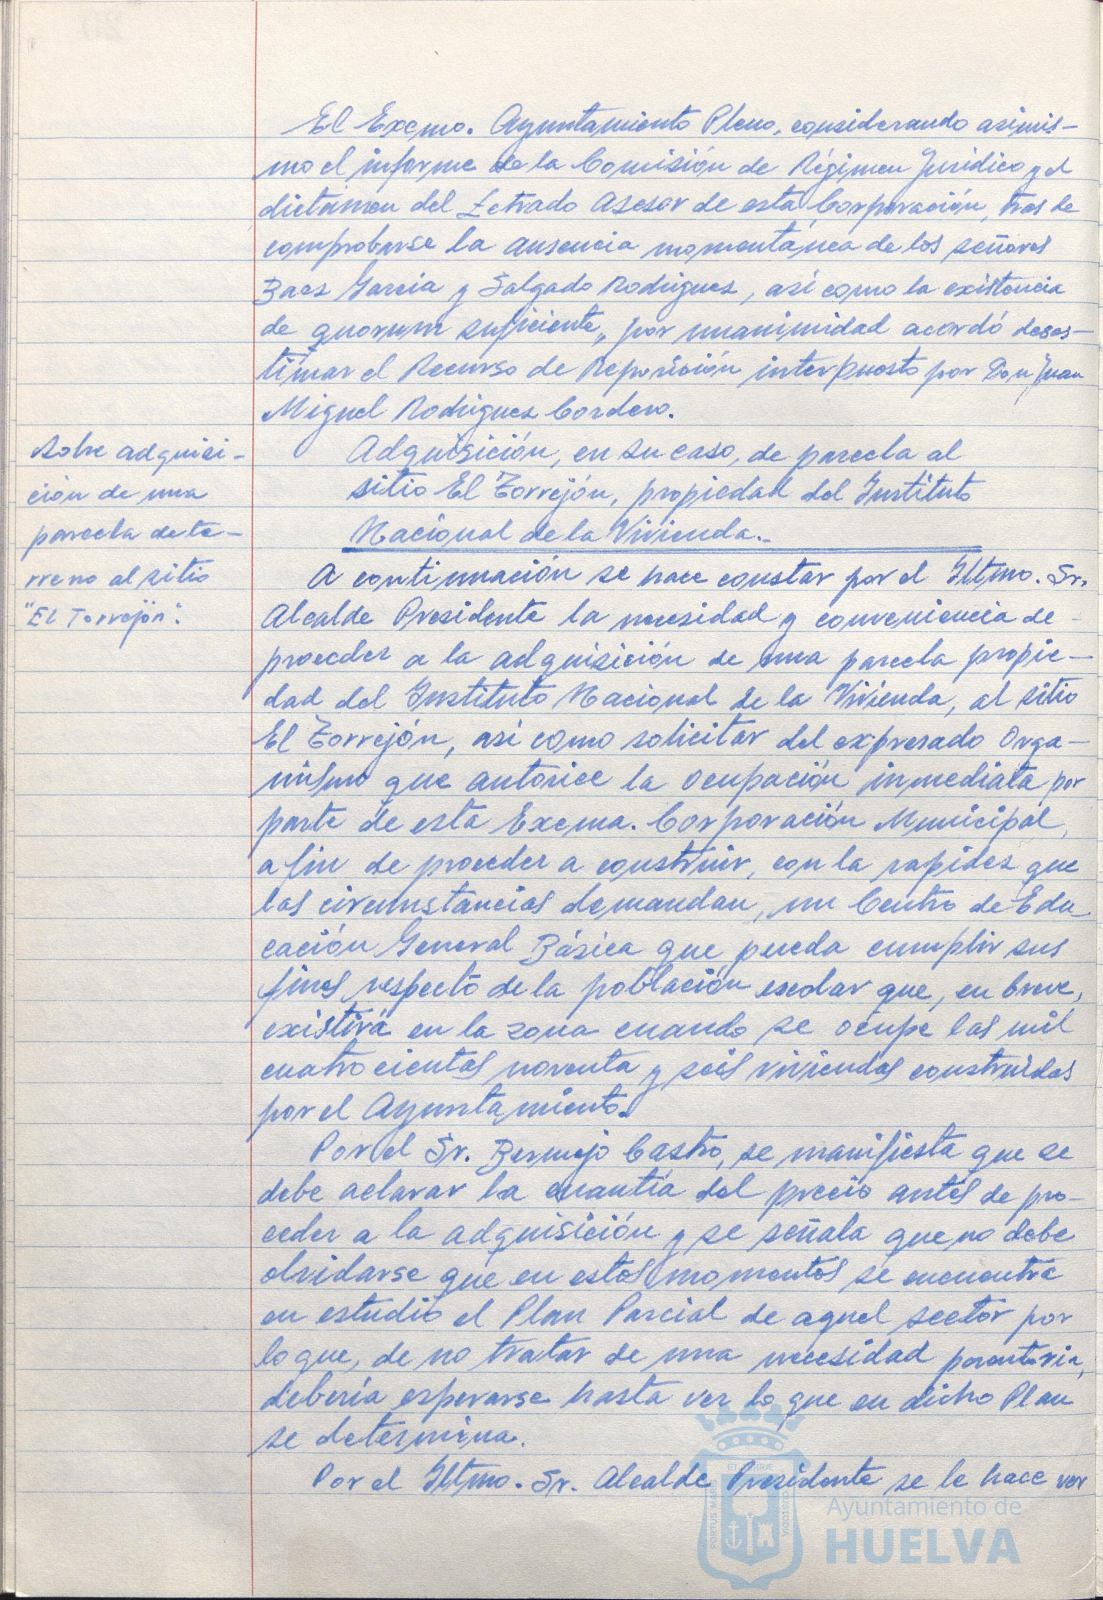 El Excmo. Ayuntamiento Pleno, considerando asimis-
mo el informe de la Comisión de Régimen Jurídico y el
dictámen del Letrado Asesor de esta Corporación, tras de
comprobarse la ausencia momentánea de los señores
Baez Garcia y Salgado Rodriguez, así como la existencia
de quorum suficiente, por unanimidad acordó deses-
timar el Recurso de Reposición interpuesto por Don Juan
Miguel Rodriguez Cordero.
Sobre adquisi-
ción de una
parcela de te-
rreno al sitio
"El Torrejón".
Adquisición, en su caso, de parcela al
sitio El Torrejón, propiedad del Instituto
Nacional de la Vivienda.-
A continuación se hace constar por el Iltmo. Sr.
Alcalde Presidente la necesidad y conveniencia de
proceder a la adquisición de una parcela propie-
dad del Instituto Nacional de la Vivienda, al sitio
El Torrejón, así como solicitar del expresado Orga-
nismo que autorice la ocupación inmediata por
parte de esta Excma. Corporación Municipal,
a fin de proceder a construir, con la rapidez que
las circunstancias demandan, un Centro de Edu-
cación General Básica que pueda cumplir sus
fines respecto de la población escolar que, en breve,
existirá en la zona cuando se ocupe las mil
cuatrocientas noventa y seis viviendas construidas
por el Ayuntamiento.
Por el Sr. Bermejo Castro, se manifiesta que se
debe aclarar la cuantía del precio antes de pro-
ceder a la adquisición y se señala que no debe
olvidarse que en estos momentos se encuentra
en estudio el Plan Parcial de aquel sector por
lo que, de no tratar de una necesidad perentoria,
debería esperarse hasta ver lo que en dicho Plan
se determina.
Por el Iltmo. Sr. Alcalde Presidente se le hace ver
Ayuntamiento de
HUELVA